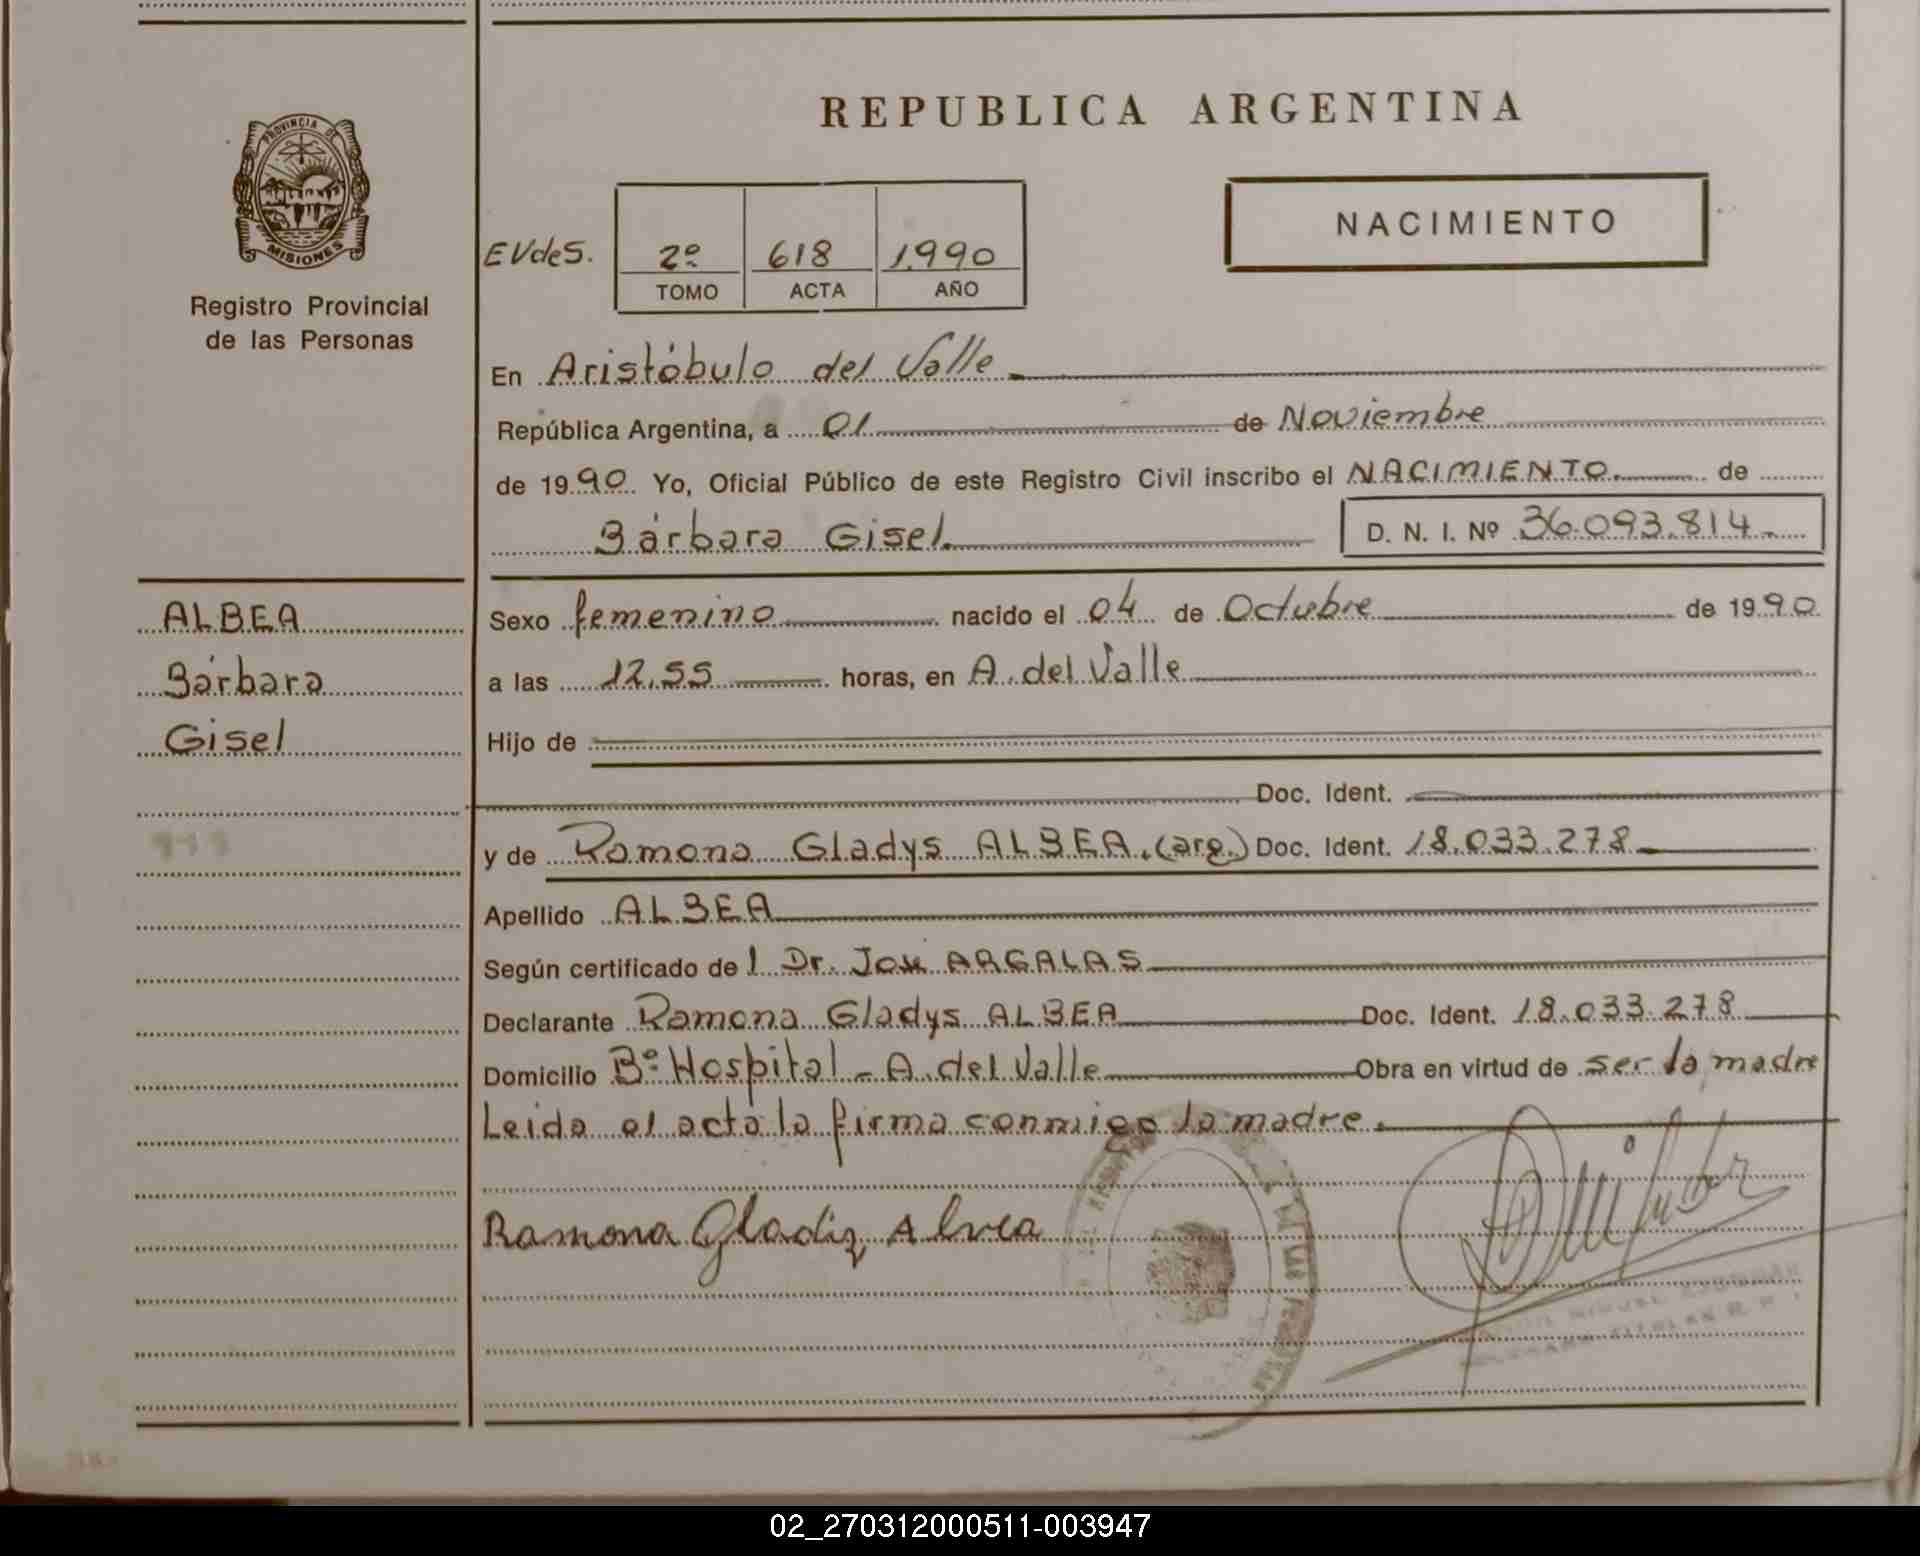 REPUBLICA ARGENTINA
PROVINCIA DE
MISIONES
Registro Provincial
de las Personas
EVdeS.
2º 618 1.990
TOMO ACTA AÑO
NACIMIENTO
En Aristóbulo del Valle
República Argentina, a 01 de Noviembre
de 1990 Yo, Oficial Público de este Registro Civil inscribo el NACIMIENTO. de
Bárbara Gisel. D. N. I. Nº 36.093.814
ALBEA
Bárbara
Gisel
Sexo femenino nacido el 04 de Octubre de 1990
a las 12,55 horas, en A. del Valle
Hijo de
Doc. Ident.
y de Ramona Gladys ALBEA.(arg.) Doc. Ident. 18.033.278
Apellido ALBEA
Según certificado de l Dr. José ARGALAS
Declarante Ramona Gladys ALBEA Doc. Ident. 18.033.278
Domicilio Bº Hospital - A. del Valle Obra en virtud de ser la madre
Leida el acta la firma conmigo la madre.
Ramona Gladiz Alvea
02_270312000511-003947